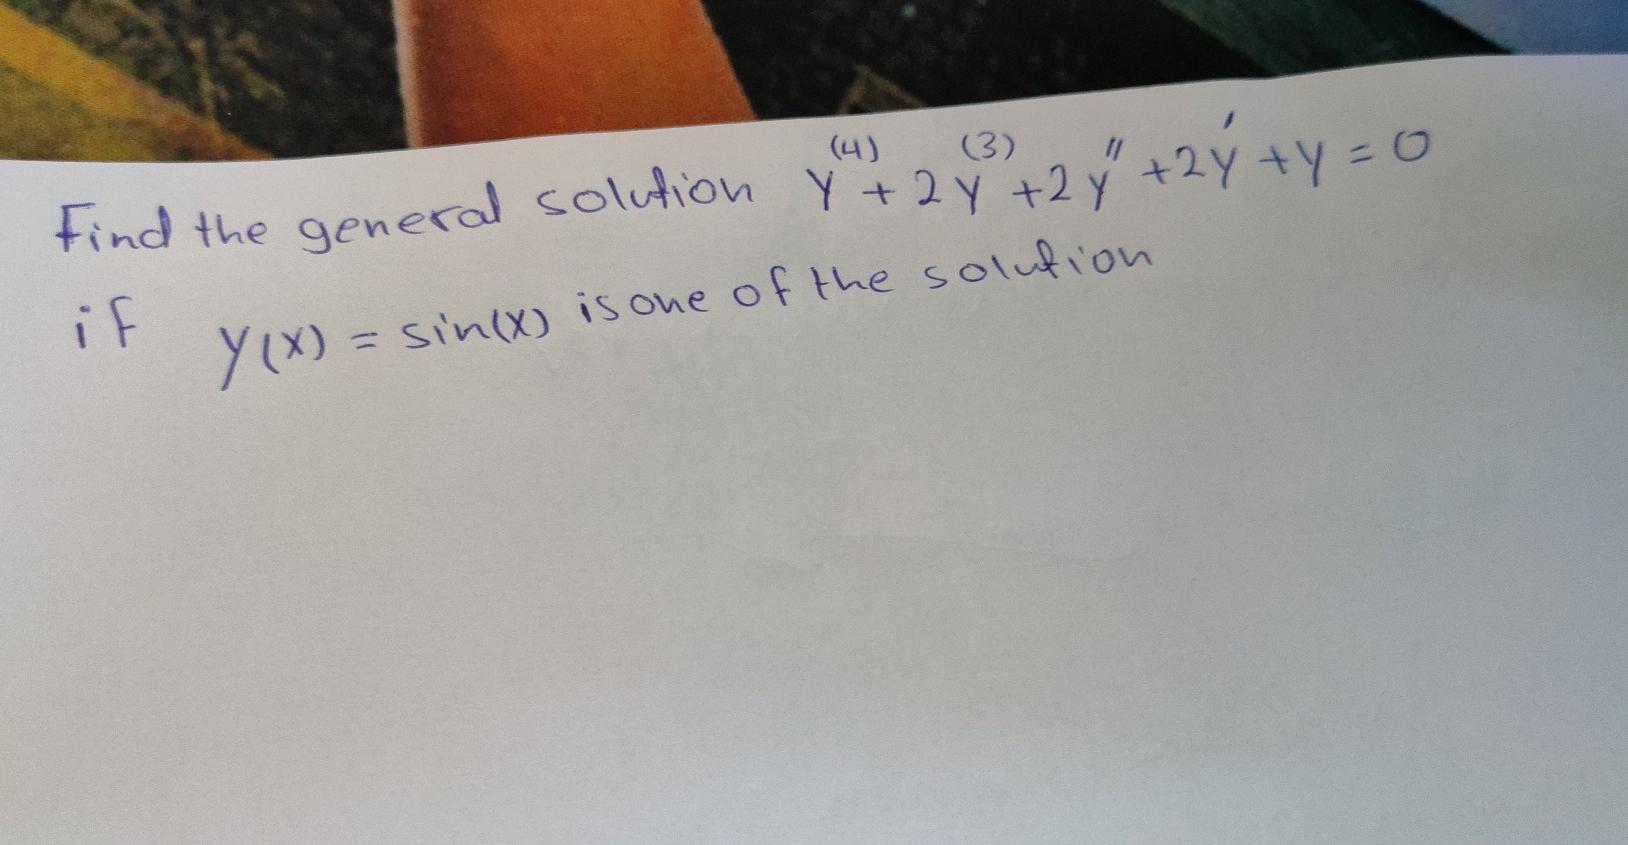 Find the general solution y⁽⁴⁾ + 2y⁽³⁾ + 2y'' + 2y' + y = 0
if y(x) = sin(x) is one of the solution